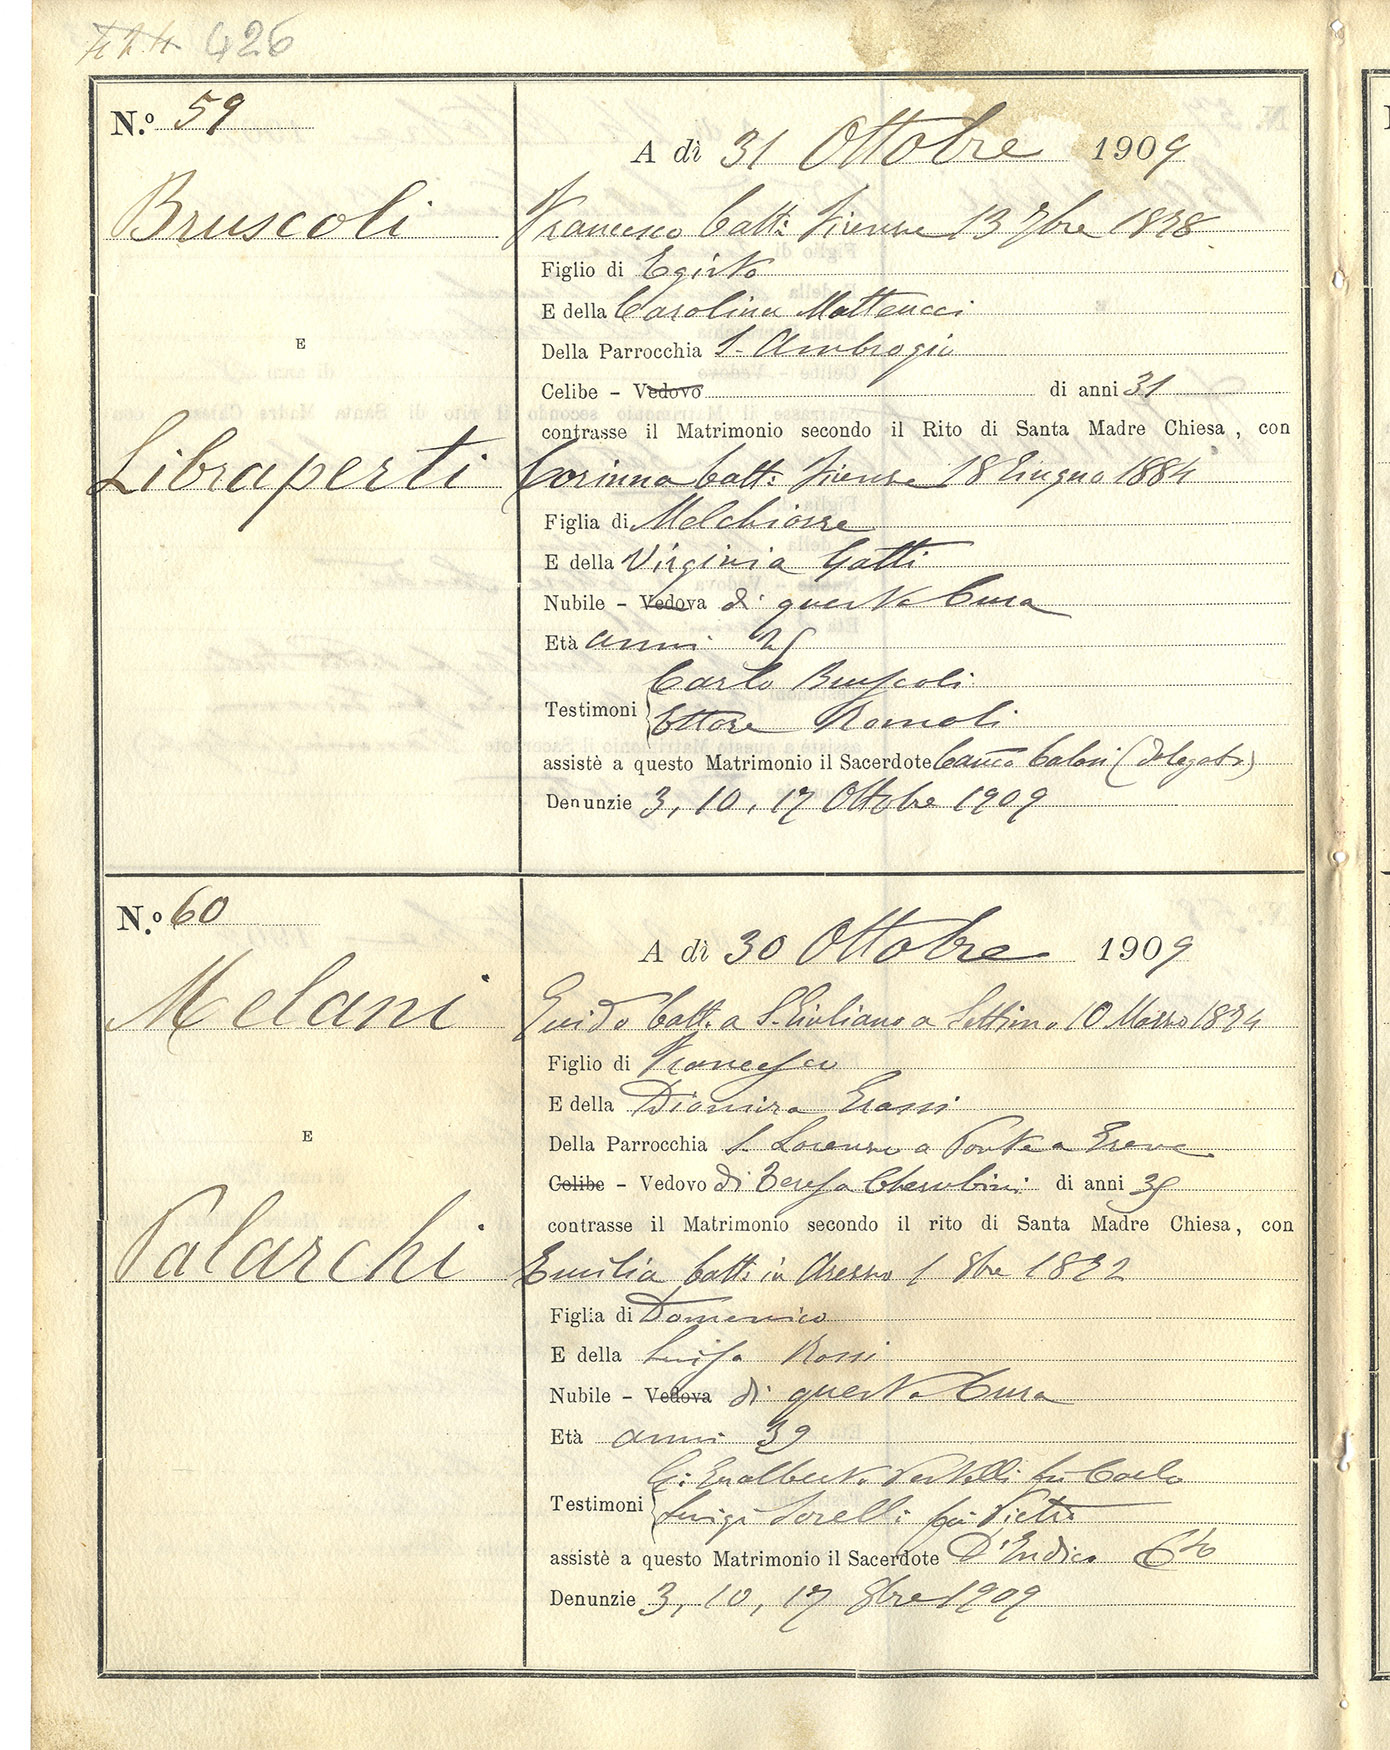 424 426
N.º 59
A dì 31 Ottobre 1909
Bruscoli
Francesco batt: Firenze 13 7bre 1878
Figlio di Egisto
E della Carolina Matteucci
Della Parrocchia S. Ambrogio
E
Celibe - Vedovo di anni 31
contrasse il Matrimonio secondo il Rito di Santa Madre Chiesa, con
Libraperti
Corinna batt: Firenze 18 Giugno 1884
Figlia di Melchiorre
E della Virginia Gatti
Nubile - Vedova di questa Cura
Età anni 25
Carlo Bruscoli
Testimoni
Ettore Romoli
assistè a questo Matrimonio il Sacerdote Calosi (Delegato)
Denunzie 3, 10, 17 Ottobre 1909
N.º 60
A dì 30 Ottobre 1909
Melani
Guido batt. a S. Giuliano a Settimo 10 Marzo 1874
Figlio di Francesco
E della Diomira Grassi
E
Della Parrocchia S. Lorenzo a Ponte a Greve
Celibe - Vedovo di Teresa Cherubini di anni 35
contrasse il Matrimonio secondo il rito di Santa Madre Chiesa, con
Palarchi
Emilia batt: in Arezzo 1 8bre 1872
Figlia di Domenico
E della Luisa Rossi
Nubile - Vedova di questa Cura
Età anni 39
G. Gualberto fu Carlo
Testimoni
Luigi Sorelli fu Pietro
assistè a questo Matrimonio il Sacerdote
Denunzie 3, 10, 17 8bre 1909